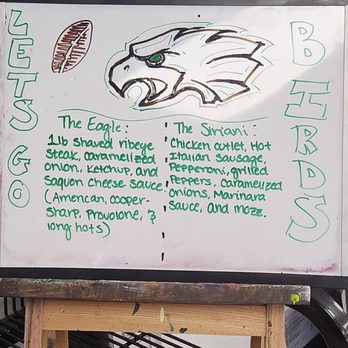 LETS GO
BIRDS
The Eagle:
1lb shaved ribeye
steak, caramelized
onion, ketchup, and
Saquon cheese sauce
(American, cooper-
sharp, Provolone, &
long hots)
The Siriani:
Chicken cutlet, Hot
Italian sausage,
Pepperoni, grilled
Peppers, Caramelized
onions, Marinara
sauce, and mozz.